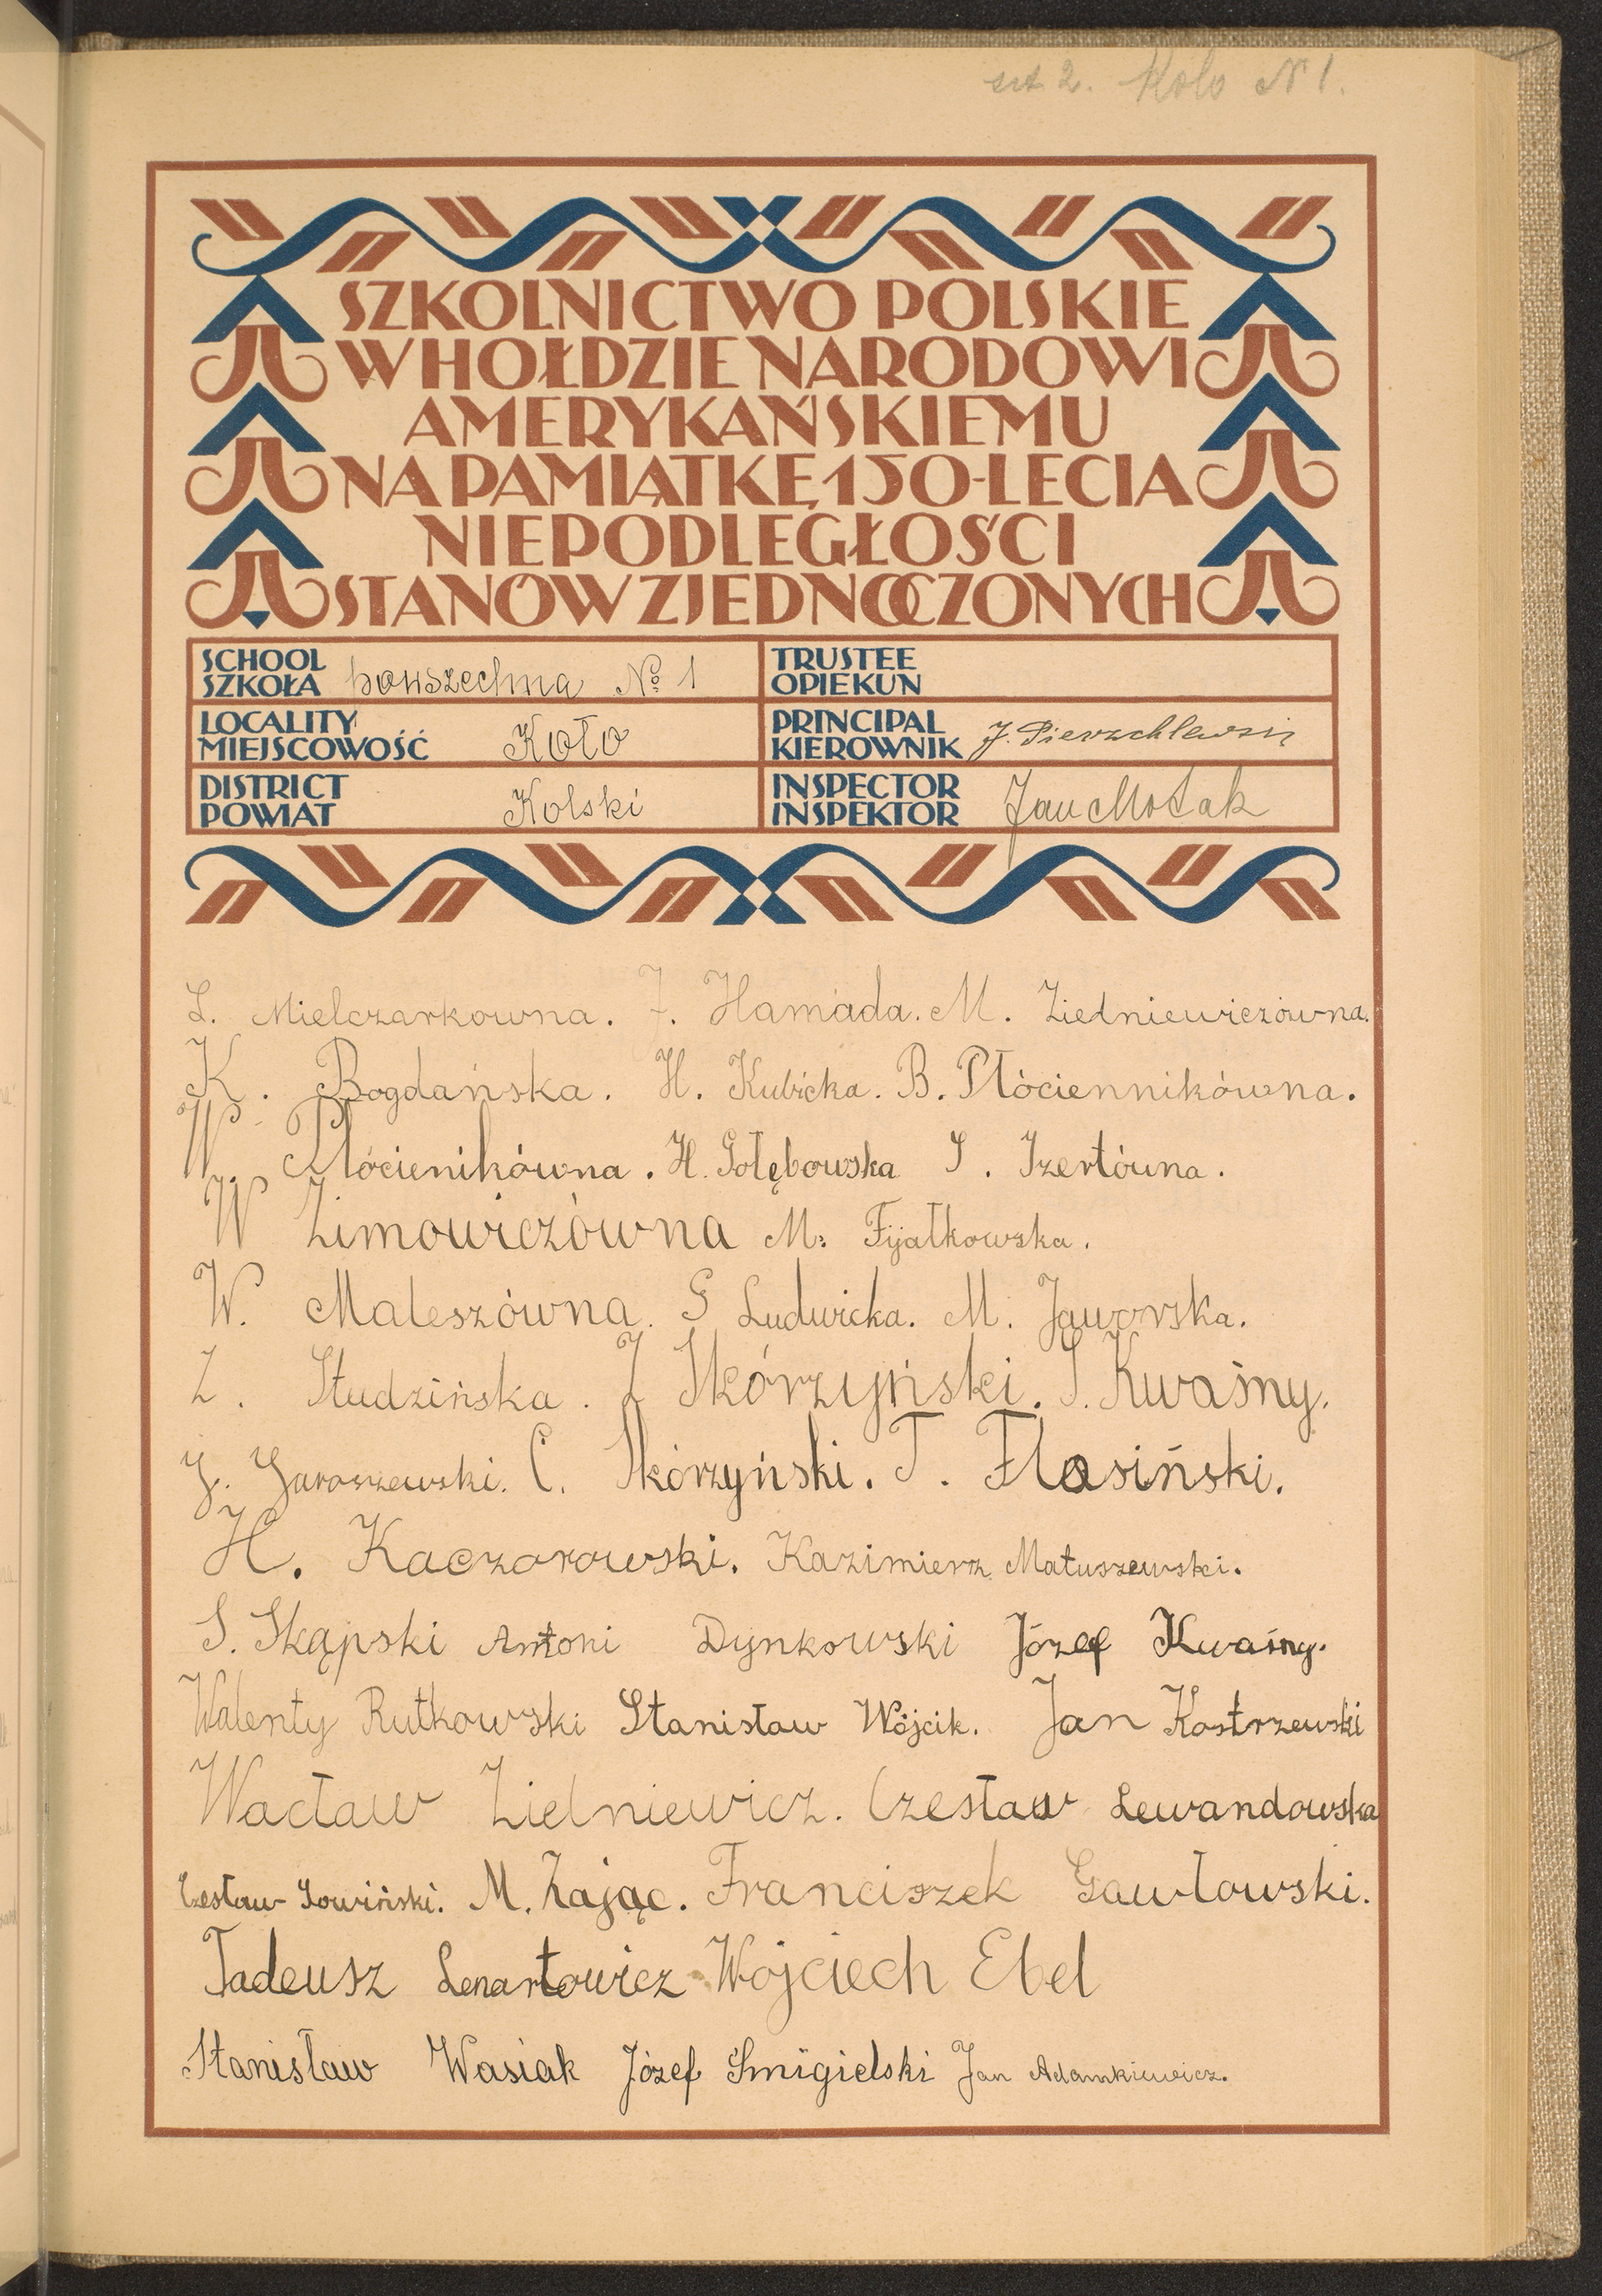 szt 2. Koło N 1.
SZKOLNICTWO POLSKIE
W HOŁDZIE NARODOWI
AMERYKAŃSKIEMU
NA PAMIĄTKĘ 150-LECIA
NIEPODLEGŁOŚCI
STANÓW ZJEDNOCZONYCH
SCHOOL
SZKOŁA powszechna № 1
TRUSTEE
OPIEKUN
LOCALITY
MIEJSCOWOŚĆ Koło
PRINCIPAL
KIEROWNIK J. Pierzchlewski
DISTRICT
POWIAT Kolski
INSPECTOR
INSPEKTOR Jan
L. Mielczarkowna. J. Hamada. M. Ziedniewiczówna.
K. Bogdańska. H. Kubicka. B. Płóciennikówna.
W. Płócienikówna. H. Gołębowska S. Szertówna.
W Zimowiczówna M. Fijałkowska.
W. Maleszówna. G Ludwicka. M. Jaworska.
Z. Studzińska. J Skórzyński. S. Kwaśny.
J. Jaroszewski. C. Skórzyński. T. Flosiński.
H. Kaczorowski. Kazimierz Matuszewski.
S. Skąpski Antoni Dynkowski Józef Kwaśny.
Walenty Rutkowski Stanisław Wójcik. Jan Kostrzewski
Wacław Zielniewicz. Czesław Lewandowska
Czesław Sowiński. M. Zając. Franciszek Gawłowski.
Tadeusz Lenartowicz Wojciech Ebel
Stanisław Wasiak Józef Śmigielski Jan Adamkiewicz.